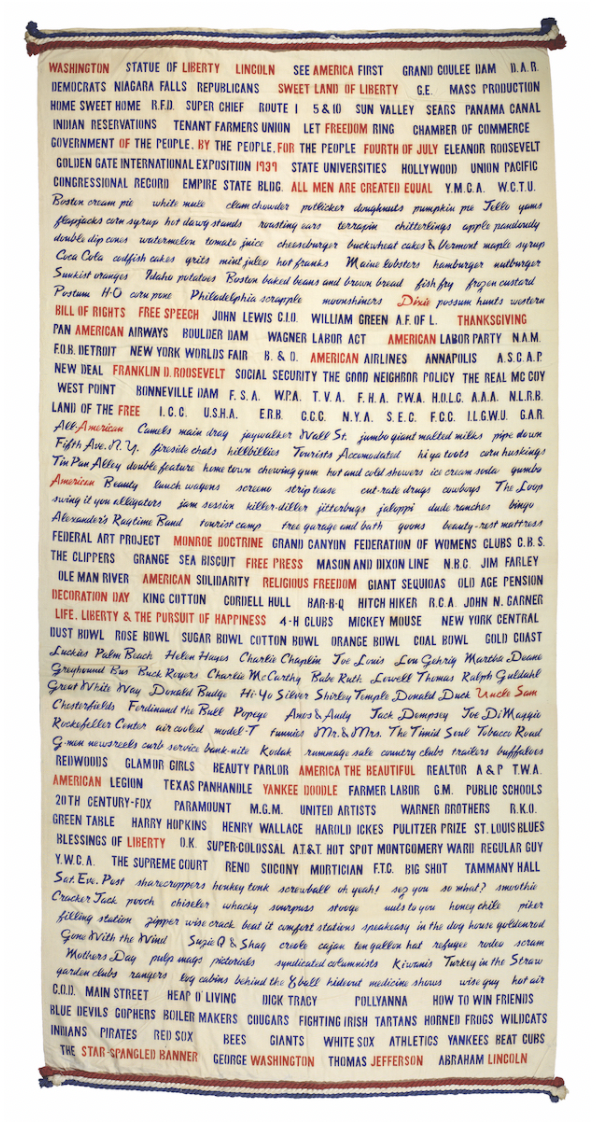 WASHINGTON STATUE OF LIBERTY LINCOLN SEE AMERICA FIRST GRAND COULEE DAM D.A.R.
DEMOCRATS NIAGARA FALLS REPUBLICANS SWEET LAND OF LIBERTY G.E. MASS PRODUCTION
HOME SWEET HOME R.F.D. SUPER CHIEF ROUTE 1 5&10 SUN VALLEY SEARS PANAMA CANAL
INDIAN RESERVATIONS TENANT FARMERS UNION LET FREEDOM RING CHAMBER OF COMMERCE
GOVERNMENT OF THE PEOPLE, BY THE PEOPLE, FOR THE PEOPLE FOURTH OF JULY ELEANOR ROOSEVELT
GOLDEN GATE INTERNATIONAL EXPOSITION 1939 STATE UNIVERSITIES HOLLYWOOD UNION PACIFIC
CONGRESSIONAL RECORD EMPIRE STATE BLDG. ALL MEN ARE CREATED EQUAL Y.M.C.A. W.C.T.U.
Boston cream pie white mule clam chowder potlicker doughnuts pumpkin pie Jello yams
flapjacks corn syrup hot dawg stands roasting ears terrapin chitterlings apple pandowdy
double dip cones watermelon tomato juice cheeseburger buckwheat cakes & Vermont maple syrup
Coca Cola codfish cakes grits mint julep hot franks Maine lobsters hamburger nutburger
Sunkist oranges Idaho potatoes Boston baked beans and brown bread fish fry frozen custard
Postum H-O corn pone Philadelphia scrapple moonshiners Dixie possum hunts western
BILL OF RIGHTS FREE SPEECH JOHN LEWIS C.I.O. WILLIAM GREEN A.F. OF L. THANKSGIVING
PAN AMERICAN AIRWAYS BOULDER DAM WAGNER LABOR ACT AMERICAN LABOR PARTY N.A.M.
F.O.B. DETROIT NEW YORK WORLDS FAIR B. & O. AMERICAN AIRLINES ANNAPOLIS A.S.C.A.P.
NEW DEAL FRANKLIN D. ROOSEVELT SOCIAL SECURITY THE GOOD NEIGHBOR POLICY THE REAL MC COY
WEST POINT BONNEVILLE DAM F.S.A. W.P.A. T.V.A. F.H.A. P.W.A. H.O.L.C. A.A.A. N.L.R.B.
LAND OF THE FREE I.C.C. U.S.H.A. E.R.B. C.C.C. N.Y.A. S.E.C. F.C.C. I.L.G.W.U. G.A.R.
All-American Camels main drag jaywalker Wall St. jumbo giant malted milks pipe down
Fifth Ave. N.Y. fireside chats hillbillies Tourists Accomodated hi ya toots corn huskings
Tin Pan Alley double feature home town chewing gum hot and cold showers ice cream soda gumbo
American Beauty lunch wagons screeno strip tease cut-rate drugs cowboys The Loop
swing it you alligators jam session killer-diller jitterbugs jaloppi dude ranches bingo
Alexander's Ragtime Band tourist camp free garage and bath goons beauty-rest mattress
FEDERAL ART PROJECT MONROE DOCTRINE GRAND CANYON FEDERATION OF WOMENS CLUBS C.B.S.
THE CLIPPERS GRANGE SEA BISCUIT FREE PRESS MASON AND DIXON LINE N.B.C. JIM FARLEY
OLE MAN RIVER AMERICAN SOLIDARITY RELIGIOUS FREEDOM GIANT SEQUOIAS OLD AGE PENSION
DECORATION DAY KING COTTON CORDELL HULL BAR-B-Q HITCH HIKER R.C.A. JOHN N. GARNER
LIFE, LIBERTY & THE PURSUIT OF HAPPINESS 4-H CLUBS MICKEY MOUSE NEW YORK CENTRAL
DUST BOWL ROSE BOWL SUGAR BOWL COTTON BOWL ORANGE BOWL COAL BOWL GOLD COAST
Luckies Palm Beach Helen Hayes Charlie Chaplin Joe Louis Lou Gehrig Martha Deane
Greyhound Bus Buck Rogers Charlie McCarthy Babe Ruth Lowell Thomas Ralph Guldahl
Great White Way Donald Budge Hi-Yo Silver Shirley Temple Donald Duck Uncle Sam
Chesterfields Ferdinand the Bull Popeye Amos & Andy Jack Dempsey Joe DiMaggio
Rockefeller Center air cooled model-T funnies Mr. & Mrs. The Timid Soul Tobacco Road
G-men newsreels curb service bank-nite Kodak rummage sale country clubs trailers buffaloes
REDWOODS GLAMOR GIRLS BEAUTY PARLOR AMERICA THE BEAUTIFUL REALTOR A & P T.W.A.
AMERICAN LEGION TEXAS PANHANDLE YANKEE DOODLE FARMER LABOR G.M. PUBLIC SCHOOLS
20TH CENTURY-FOX PARAMOUNT M.G.M. UNITED ARTISTS WARNER BROTHERS R.K.O.
GREEN TABLE HARRY HOPKINS HENRY WALLACE HAROLD ICKES PULITZER PRIZE ST. LOUIS BLUES
BLESSINGS OF LIBERTY O.K. SUPER-COLOSSAL A.T.&T. HOT SPOT MONTGOMERY WARD REGULAR GUY
Y.W.C.A. THE SUPREME COURT RENO SOCONY MORTICIAN F.T.C. BIG SHOT TAMMANY HALL
Sat. Eve. Post sharecroppers honkey tonk screwball oh yeah! sez you so what? smoothie
Cracker Jack pooch chiseler whacky sourpuss stooge nuts to you honey chile piker
filling station zipper wise crack beat it comfort stations speakeasy in the dog house goldenrod
Gone With the Wind Suzie Q & Shag creole cajan ten gallon hat refugee rodeo scram
Mothers Day pulp mags pictorials syndicated columnists Kiwanis Turkey in the Straw
garden clubs rangers log cabins behind the 8 ball hideout medicine shows wise guy hot air
C.O.D. MAIN STREET HEAP O' LIVING DICK TRACY POLLYANNA HOW TO WIN FRIENDS
BLUE DEVILS GOPHERS BOILER MAKERS COUGARS FIGHTING IRISH TARTANS HORNED FROGS WILDCATS
INDIANS PIRATES RED SOX BEES GIANTS WHITE SOX ATHLETICS YANKEES BEAT CUBS
THE STAR-SPANGLED BANNER GEORGE WASHINGTON THOMAS JEFFERSON ABRAHAM LINCOLN